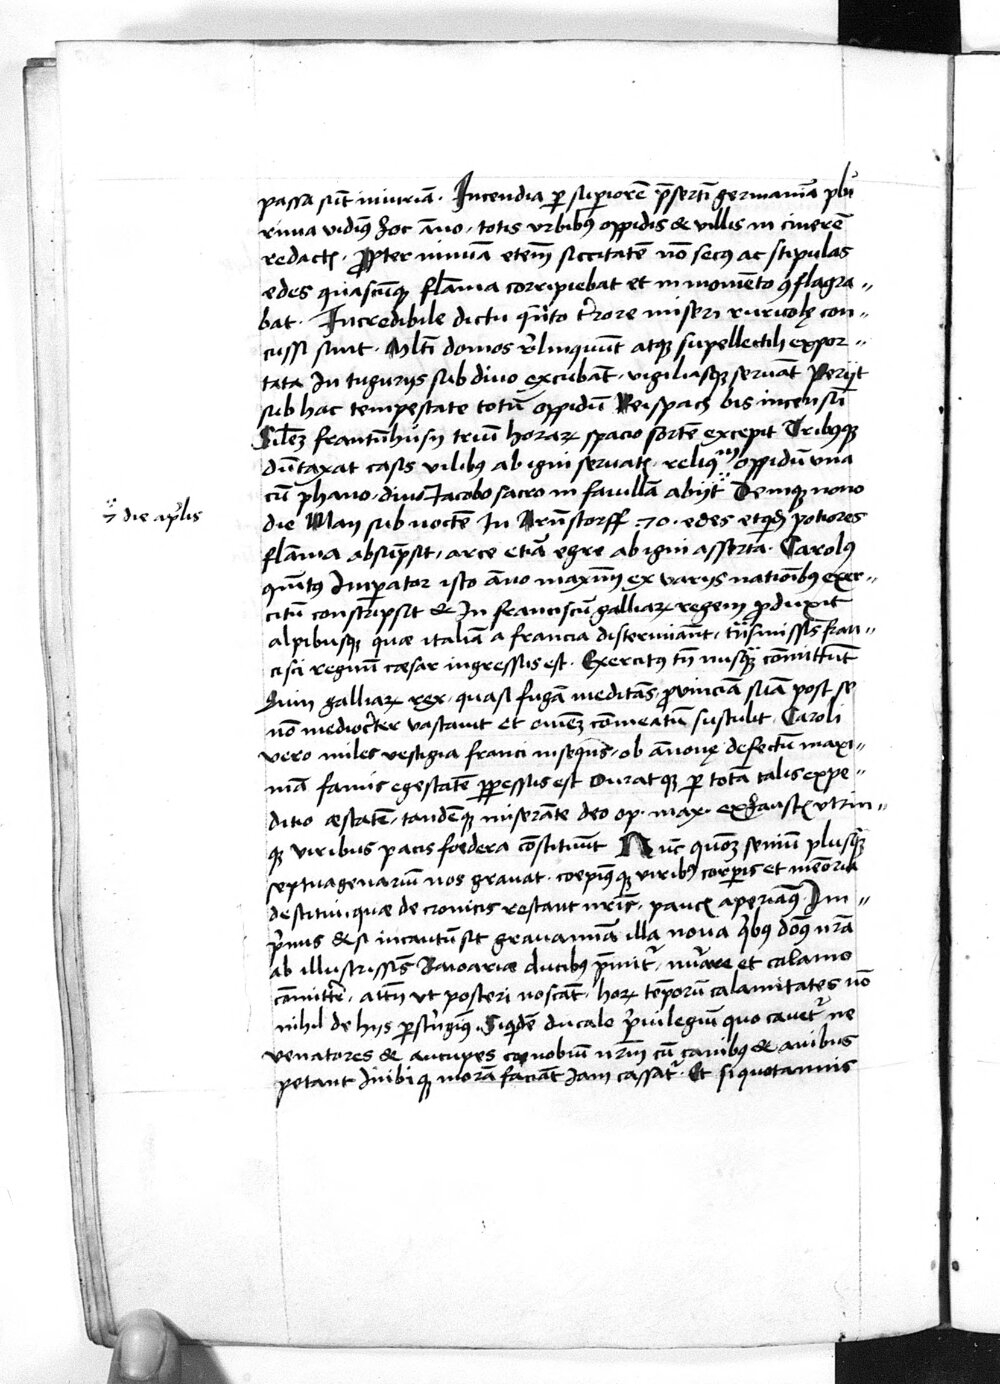 passa sūt iniuriā. Incendia ꝑ superiorē p̄sertī germaniā plu
rima vidimꝰ hoc āno, totis vrbibꝰ oppidis & villis in cinerē
redactis. Propter nimiā eteni siccitatē nō secꝰ ac stipulas
ædes quascūq̨ flāma corripiebat et in momento ꝯflagra〃
bat. Incredibile dictu quāto t'rore miseri ruricolę con〃
cussi sunt. Multi domos relinquūt atq̨ supellectili expor〃
tata In tugurijs sub diuo excubāt, vigiliasq̨ seruāt Perijt
sub hac tempestate totū oppidū Reispach bis incensū
Silr frantūhusn triū horaꝝ spacio sortē excepit Tribꝰq̨
dūtaxat casis vilibꝰ ab igni seruatis, reliquū oppidū vna
cū phano, diuo Iacobo sacro in fauillā abijt Deniq̨ nono
die Maij sub noctē In Arnstorff .70. edes etqdē potiores
flāma absūpsit, arce etiā egre ab igni asserta. Carolꝰ
7 die aprilis
quītꝰ Imperator isto āno maximū ex varijs nationibꝰ exer〃
citū conscripsit & In franciscū galliaꝝ regem produxit
alpibusq̨ quæ italiā a francia disterminant, trāsmissis fran〃
cisci regnum cæsar ingressus est. Exercitꝰ tn nusq̄ cōmittunt̄
Enim galliaꝝ rex, quasi fugā meditās, prouinciā suā post se
nō mediocriter vastauit et omnē cōmeatū sustulit. Caroli
vero miles vestigia franci insequēs, ob ānonę defectū maxi〃
mā famis egestatē perpessus est Duratq̨ ꝑ totā talis expe〃
ditio æstatē, tandēq̨ miserāte deo op. max. exhaustis vtrin〃
q̨ viribus pacis foedera cōstituūt Nūc quom seniū plusq̄
septuagenariū nos grauat, coepimꝰq̨ viribꝰ corporis et memoria
destitui, quæ de cronicis restant nostris, paucis aperiamꝰ. Im〃
primis & si incautū sit grauamina illa noua quibꝰ domꝰ nrā
ab illustrissis Baioariæ ducibꝰ premitur, numerare et calamo
cōmittere, attn vt posteri noscāt, horꝝ temporū calamitates nō
nihil de hijs perstringimꝰ. Siquidē ducale priuilegiū quo cauetur ne
venatores & aucupes coenobiū nrm cū canibꝰ & auibus
petant Inibiq̨ morā faciāt iam cassatur. Et si quotannis